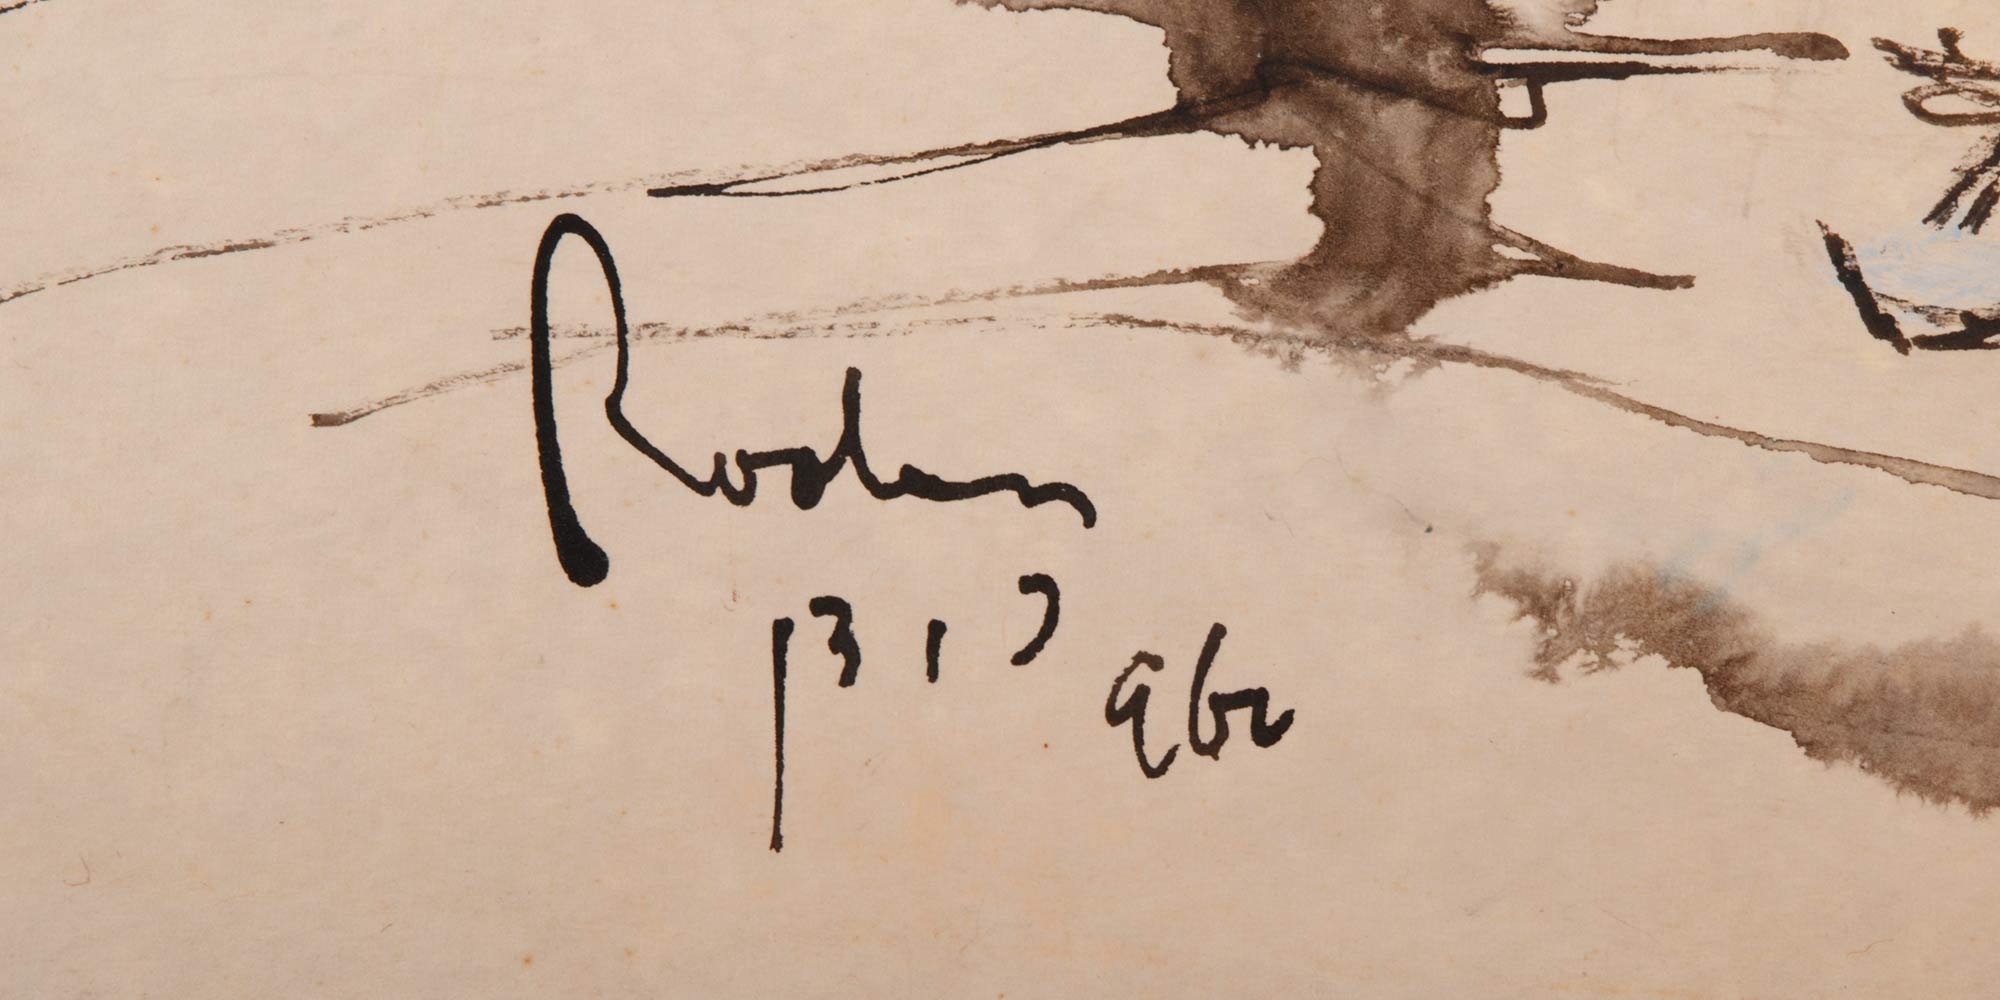 Roden
13 1 7
960